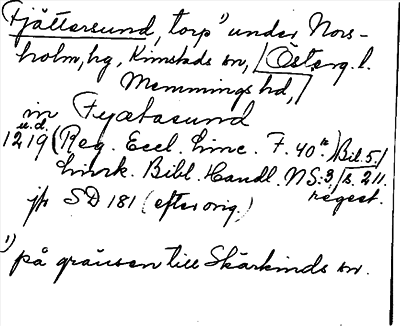 Fjättersund, torp ¹) under Nors-
holm, hg, Kimstads sn, Österg. l.
Memmings hd,
in Fyætasund
u.d.
1219 (Reg. Eccl. Linc. F. 40 r.) Bil. 5.
Linck. Bibl. Handl. NS. 3. s. 211.
regest.
jfr SD 181 (efter orig.)
¹) på gränsen till Skärkinds sn.